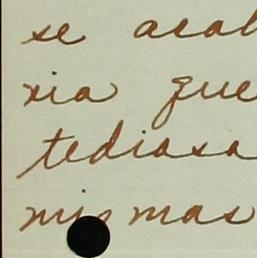 se acab
xia que
tediosa
mismas